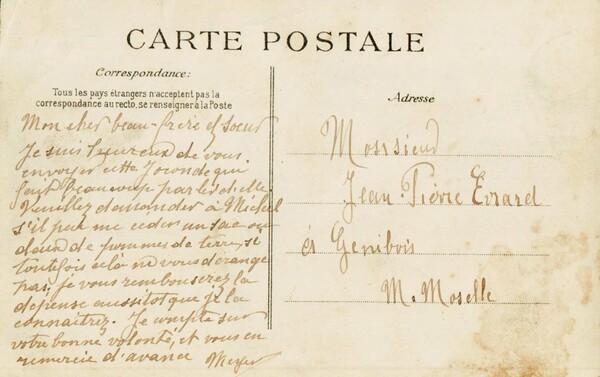 CARTE POSTALE
Correspondance:
Tous les pays étrangers n'acceptent pas la
correspondance au recto, se renseigner à la Poste
Mon cher beau-frère et soeur
Je suis heureux de vous
envoyer cette Joconde qui
fait beaucoup parler d'elle.
Veuillez demander à Michel
s'il peut me céder un sac ou
deux de pommes de terre, si
toutefois cela ne vous dérange
pas, je vous rembourserez la
dépense aussitot que je la
connaitrez. Je compte sur
votre bonne volonté, et vous en
remercie d'avance Meyer
Adresse
Monsieur
Jean-Pierre Evrard
à Genibois
M. Moselle